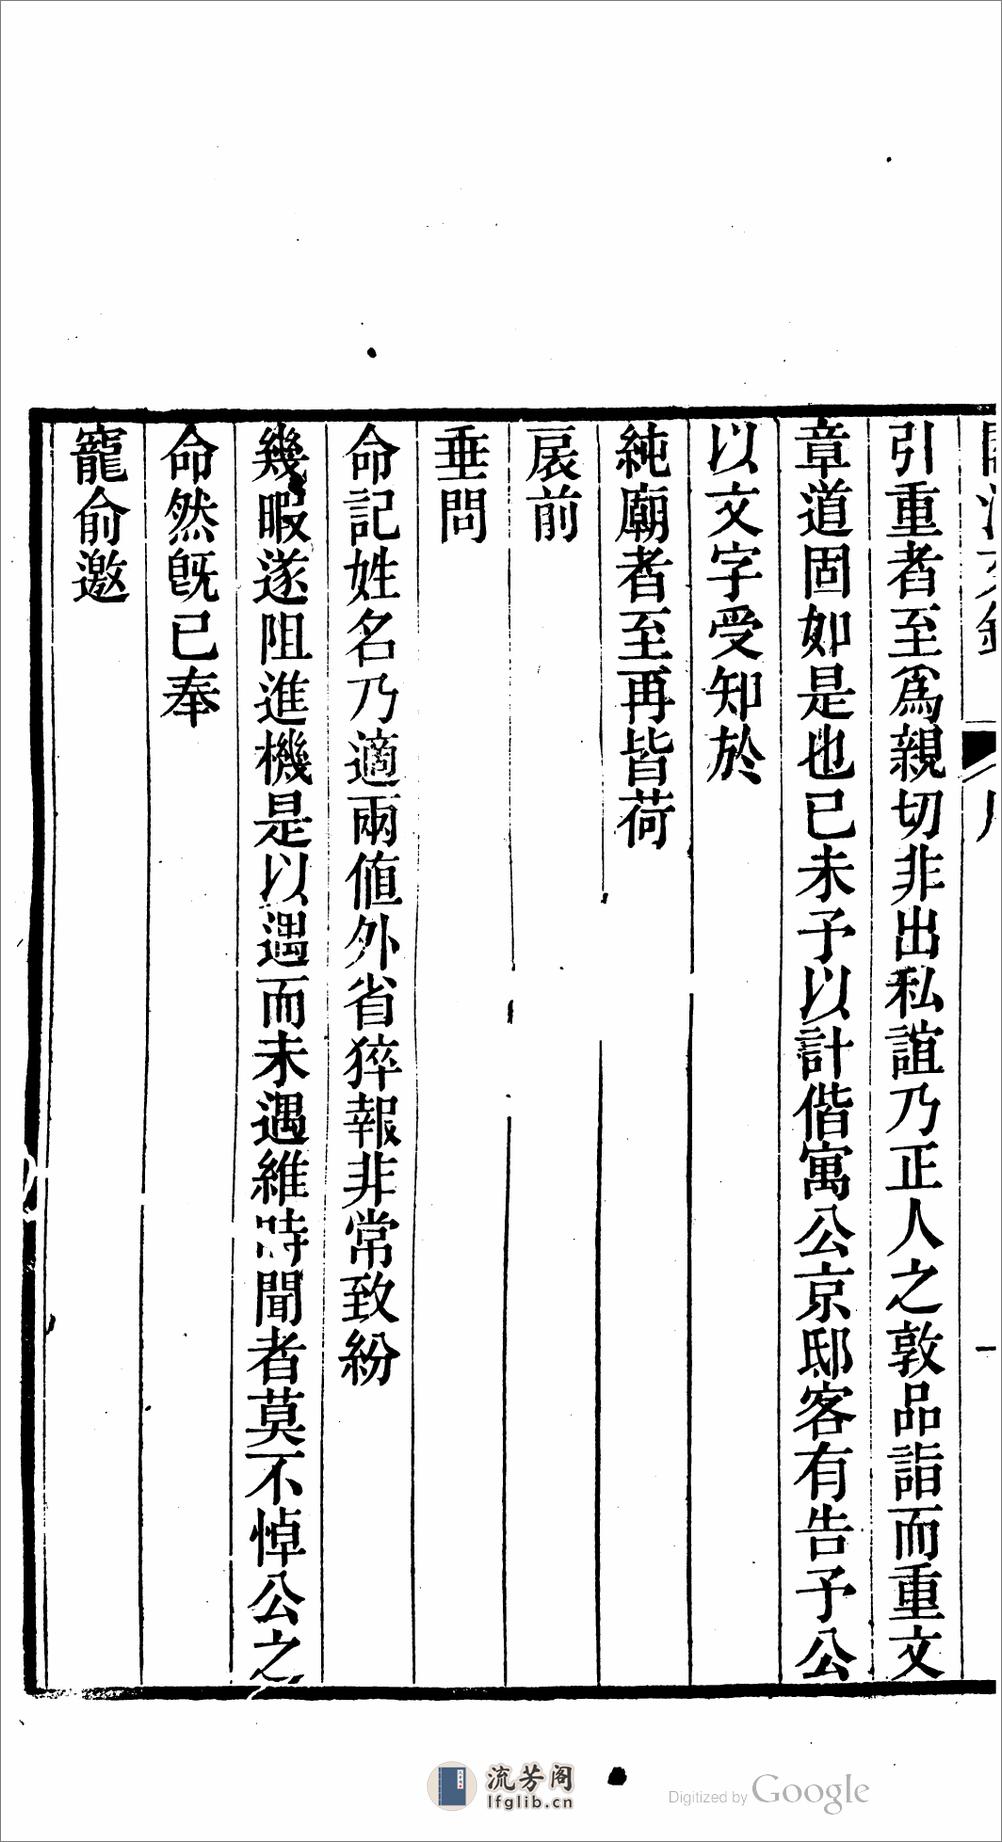 引重者至爲親切非出私誼乃正人之敦品詣而重文
章道固如是也已未予以計偕寓公京邸客有告予公
以文字受知於
純廟者至再皆荷
扆前
垂問
命記姓名乃適兩値外省猝報非常致紛
幾暇遂阻進機是以遇而未遇維時聞者莫不悼公之
命然旣已奉
寵俞邀
流芳阁
lfglib.cn
Digitized by Google